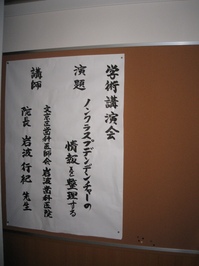 学術講演会
演題 ノンクラスプデンデンチャーの
情報を整理する
講師 文京区歯科医師会 岩波歯科医院
院長 岩波 行紀 先生